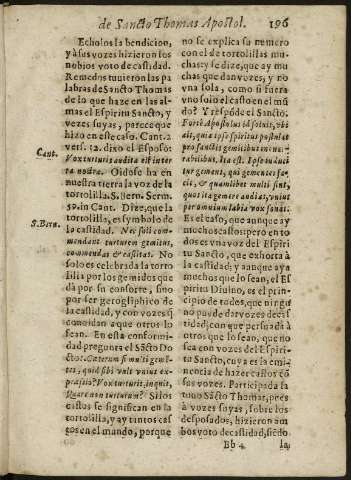 de Sancto Thomas Apostol. 196
Echoles la bendicion,
y à sus vozes hizieron los
nobios voto de castidad.
Remedos tuvieron las pa
labras de Sancto Thomas
de lo que haze en las al-
mas el Espiritu Sancto, y
vezes suyas, parece que
hizo en este caso. Cant. 2
vers. 12. dixo el Esposo:
Cant.
Vox turturis audita est in ter
ra nostra. Oidose ha en
nuestra tierra la voz de la
tortolilla. S. Bern. Serm.
S. Bern.
59. in Cant. Dize, que la
tortolilla, es symbolo de
la castidad. Nec soli com-
mendant turturem gemitus,
commendat & castitas. No
solo es celebrada la torto
lilla por los gemidos que
dà por su consorte, sino
por ser geroglyphico de
la castidad, y con vozes q̃
combidan a que otros lo
sean. En esta conformi-
dad pregunta el Sãcto Do
ctor. Cæterum si multi gemi-
tes, quid sibi vult vnius ex-
præssio? Vox turturis, inquit,
Quare non turturum? Si los
castos se significan en la
tortolilla, y ay tãtos cas
tos en el mundo, porque
no se explica su numero
con el de tortolillas mu-
chas: y se dize, que ay mu
chas que dan vozes, y no
vna sola, como si fuera
vno solo el casto en el mũ
do? Y respõde el Sancto.
Forte Apostolus id soluit, vbi
ait, quia ipse spiritus postulat
pro sanctis gemitibus inena-
rrabilibus. Ita est. Ipse induci
tur gemens, qui gementes fa-
cit, & quamlibet multi sint,
quos ita gemere audias, vnius
per omnium labia vox sonat.
Es el caso, que aunque ay
muchos castos: pero en to
dos es vna voz del Espiri
tu Sancto, que exhorta à
la castidad, y aunque aya
muchos que lo sean, el Es
piritu Diuino, es el prin-
cipio de todos, que ningu
no puede dar vozes de cas
tidad, con que persuadà à
otros, que lo sean, que no
sea con vozes del Espiri-
tu Sancto, cuya es la emi-
nencia de hazer castos cõ
sus vozes. Participada la
tuuo Sãcto Thomas, pues
à vozes suyas, sobre los
desposados, hizieron am
bos voto de castidad, siẽdo
Bb 4 la